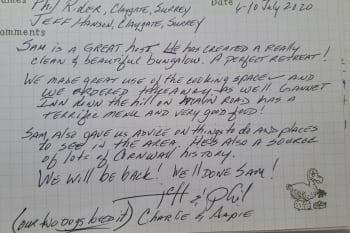 ames Phil Rider, Claygate, Surrey Date
Jeff Hanson, Claygate, Surrey 4-10 July 2020
omments
Sam is a GREAT host. He has created a really
clean & beautiful bungalow. A perfect retreat!
We made great use of the cooking space - and
we ordered takeaway as well. Gannet
Inn down the hill on main road has a
terrific menu and very good food!
Sam, also gave us advice on things to do and places
to see in the area. He's also a source
of lots of Cornwall history.
We will be back! Well done Sam!
Jeff & Phil
(our two dogs loved it) Charlie & Angie